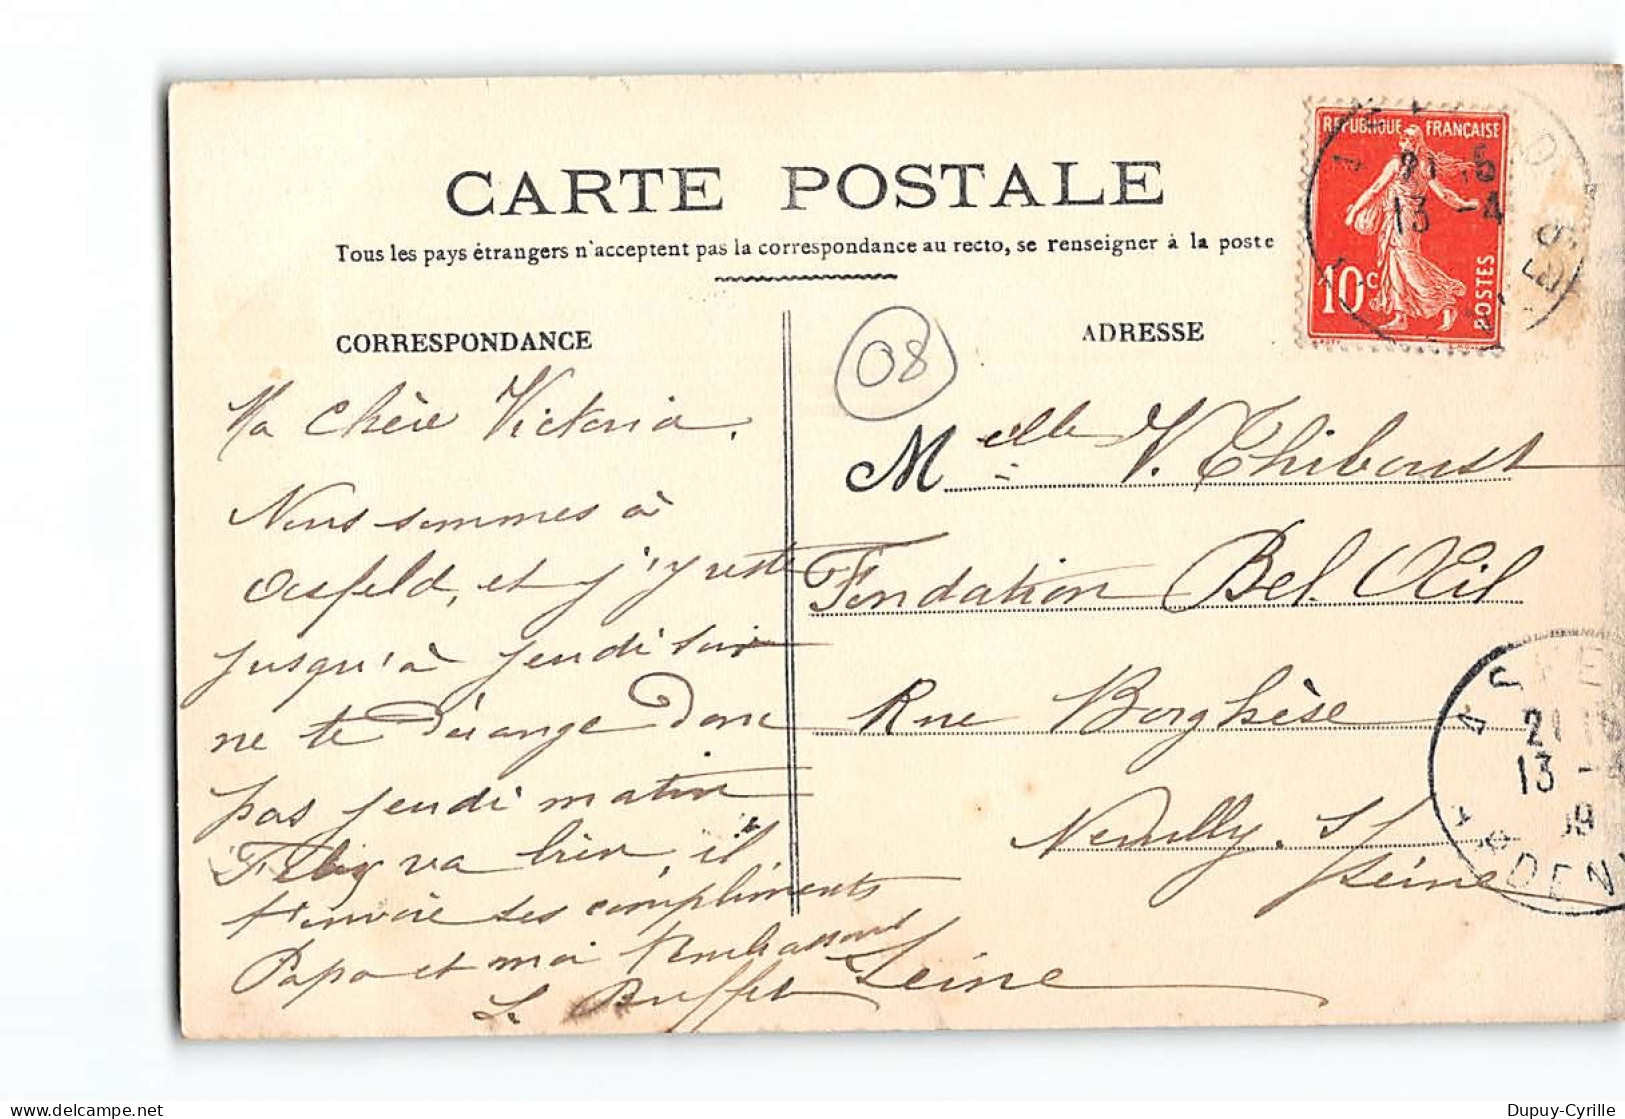 CARTE POSTALE
Tous les pays étrangers n'acceptent pas la correspondance au recto, se renseigner à la poste
CORRESPONDANCE
ADRESSE
REPUBLIQUE FRANÇAISE
10c
POSTES
13 -4
08
Ma chère Victoria,
Nous sommes à
Asfeld, et j'y reste
jusqu'à jeudi soir
ne te dérange donc
pas jeudi matin
va bien, il
t'envoie ses compliments
Papa et moi t'embrassons
L. Buffet
Melle V. Thiboust
Fondation Bel. Œil
Rue Borghèse
Neuilly. s/Seine
Seine
13 -4
09
ARDENNES
Dupuy-Cyrille